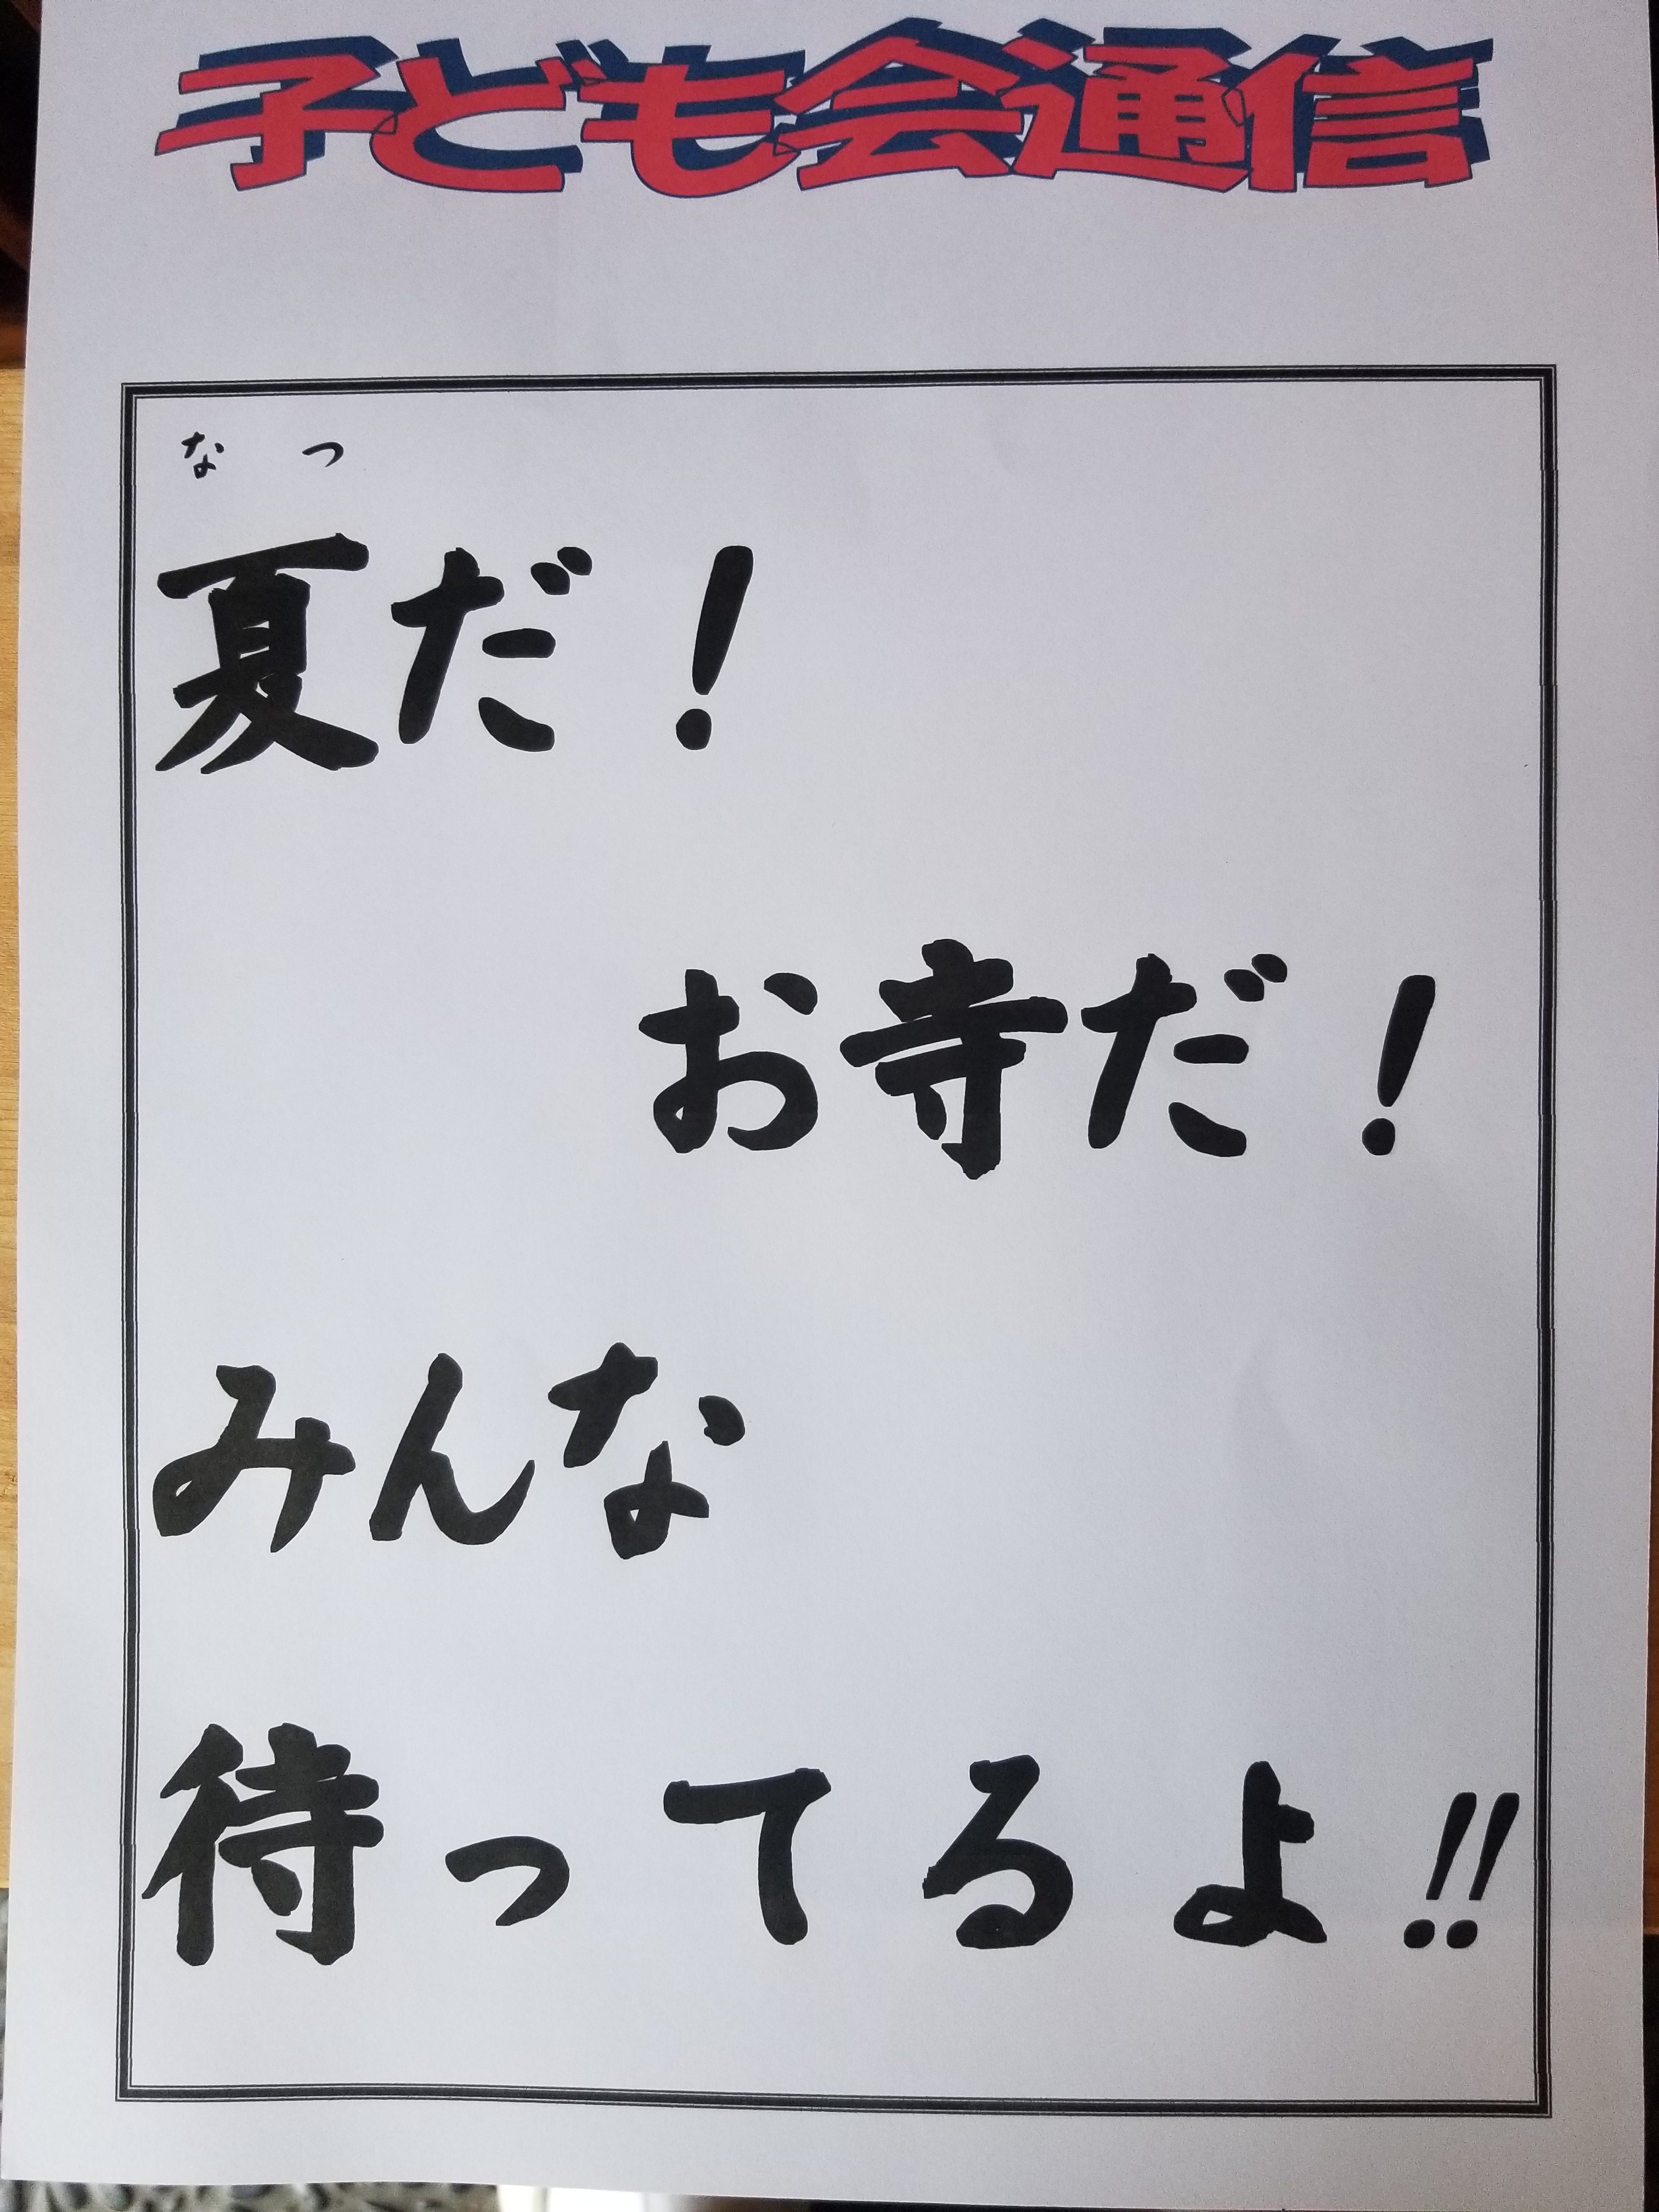 子ども会通信
なつ
夏だ！
お寺だ！
みんな
待ってるよ!!